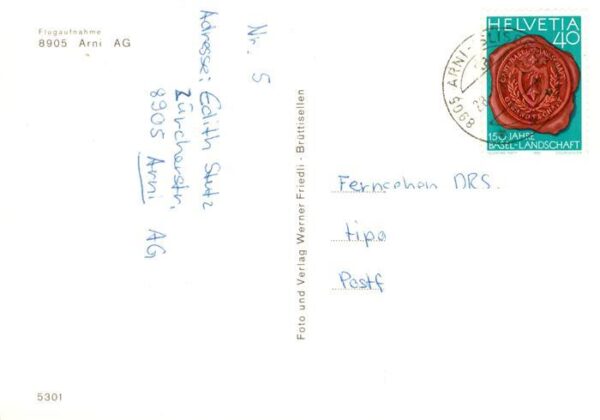 Flugaufnahme
8905 Arni AG
Nr. 5
Adresse: Edith Stutz
Zürcherstr.
8905 Arni AG
Foto und Verlag Werner Friedli · Brüttisellen
HELVETIA
40
150 JAHRE
BASEL-LANDSCHAFT
8905 ARNI-
Fernsehen DRS.
tipo
Postf
5301